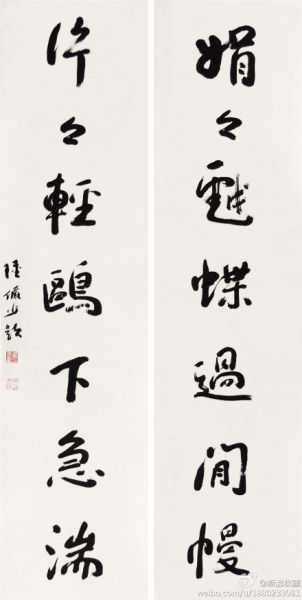 娟々戲蝶過閒幔
片々輕鷗下急湍
陸儼少
@新浪收藏
weibo.com/u/1880233081